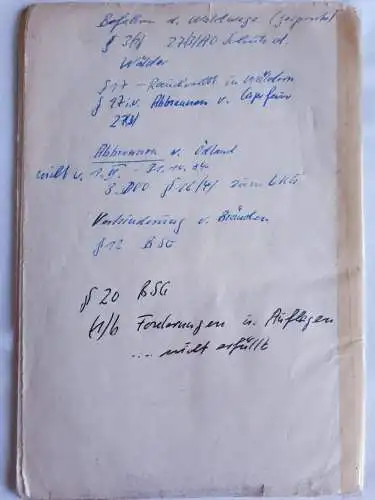 Befahren d. Waldwege (gesperrte)
§ 3(1) 27/1/70 Schutz d.
Wälder
§ 17 - Rauchverbot in Wäldern
§ 27 i.V. Abbrennen v. Lagerfeuer
27(1)
Abbrennen v. Ödland
nicht v. 1. - 31.10.
§ 16/(4) zum LKG
Verhinderung v. Bränden
§ 12 BSG
§ 20 BSG
(1)/6 Forderungen u. Auflagen
... nicht erfüllt